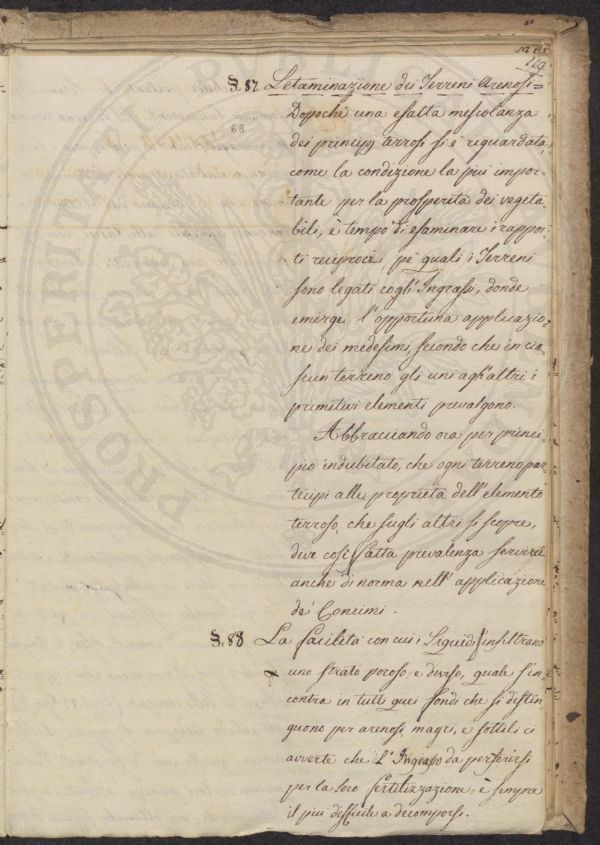 119
§. 87. Letaminazione dei Terreni Arenosi=
Dopochè una esatta mescolanza
66
dei principj terrosi si è riguardata,
come la condizione la più impor-
tante per la prosperità dei vegeta-
bili, è tempo di esaminare i rappor-
ti reciproci, pe' quali i Terreni
sono legati cogl' Ingrassi, donde
emerge l'opportuna applicazio-
ne dei medesimi, secondo che in cia-
scun terreno gli uni agl'altri i
primitivi elementi prevalgono.
Abbracciando ora per princi-
pio indubitato, che ogni terreno par-
tecipi alle proprietà dell'elemento
terroso, che sugli altri si scopre,
dur così fatta prevalenza servire
anche di norma nell' applicazione
de' Concimi.
§. 88 La facilità con cui i Liquidi s'infiltrano
uno strato poroso, e diviso, quale s'in-
contra in tutti quei fondi che si distin
guono per arenosi, magri, e sottili ci
avverte che l'Ingrasso da preferirsi
per la loro fertilizzazione, è sempre
il più difficile a decomporsi.
PROSPERITATI PUBLI